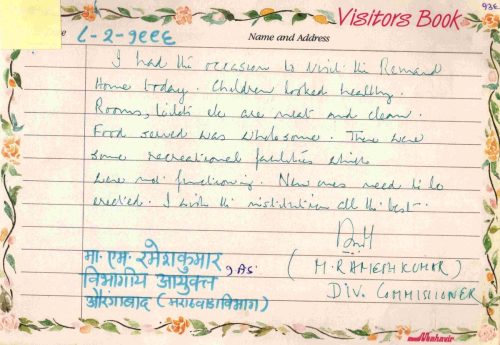 Visitors Book
936
८-२-१९९६
Name and Address
I had the occasion to visit the Remand
Home today. Children looked healthy.
Rooms, toilets etc are neat and clean.
Food served was wholesome. There were
some recreational facilities which
were not functioning. New ones need to be
erected. I wish the institution all the best.
मा. एम. रमेशकुमार
I A S.
(M. RAMESHKUMAR)
विभागीय आयुक्त
DIV. COMMISSIONER
औरंगाबाद (मराठवाडा विभाग)
Mahavir